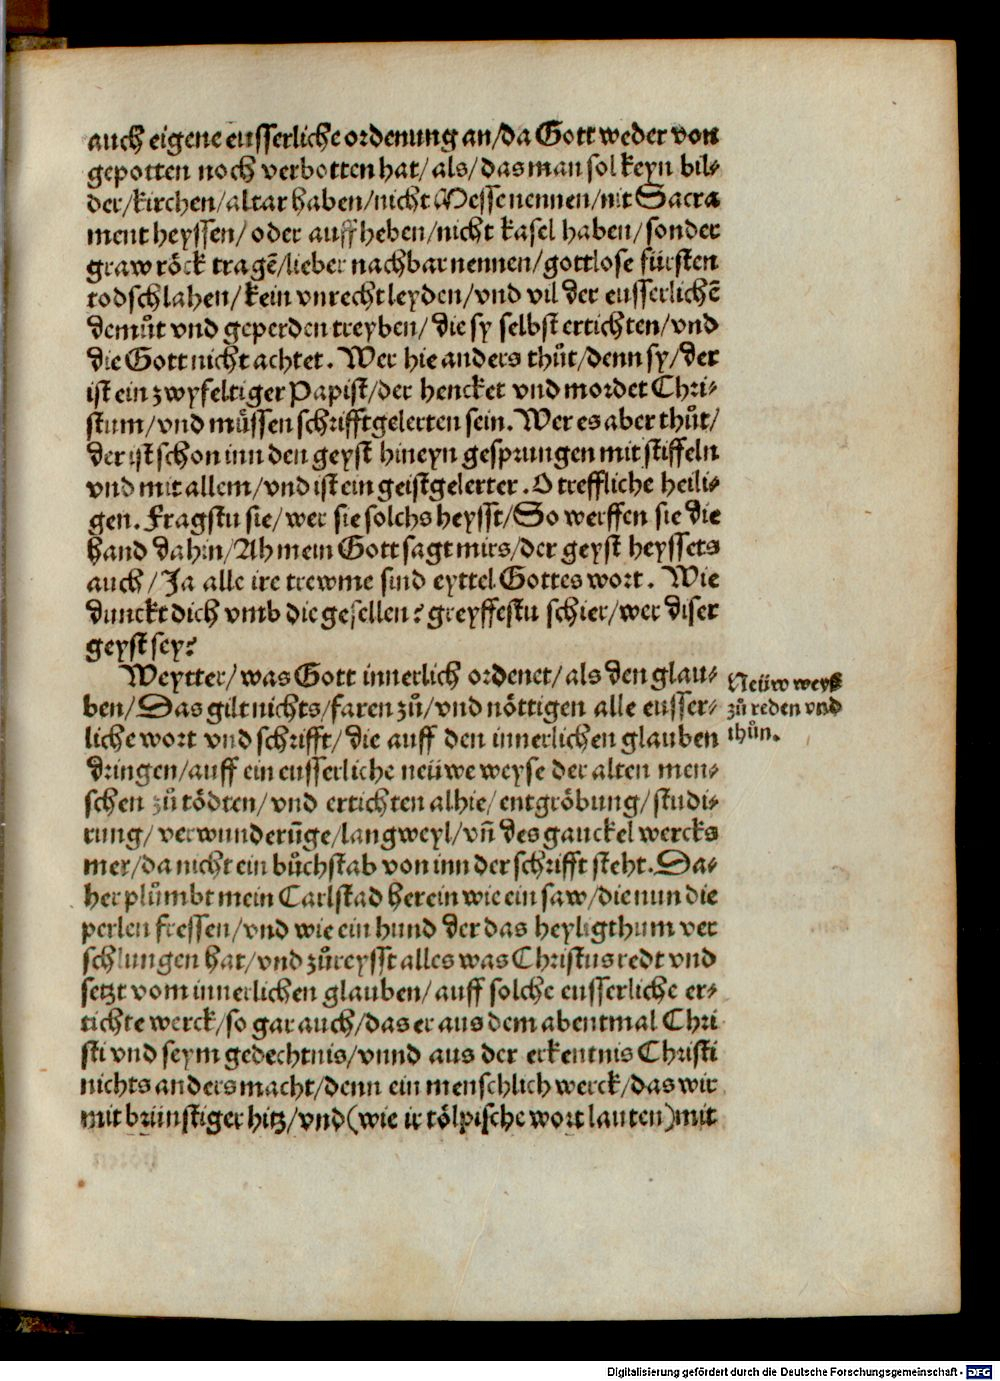 auch eigene eusserliche ordenung an/da Gott weder von
gepotten noch verbotten hat/ als/ das man sol keyn bil⸗
der/kirchen/altar haben/nicht Messe nennen/nit Sacra
ment heyssen/ oder auffheben/nicht kasel haben/ sonder
graw röck tragē/lieber nachbar nennen/gottlose fürsten
todschlahen/ kein vnrecht leyden/vnd vil der eusserlichē
demůt vnd geperden treyben/ die sy selbst ertichten/vnd
die Gott nicht achtet. Wer hie anders thůt/denn sy/der
ist ein zwyfeltiger Papist/der hencket vnd mordet Chri⸗
stum/vnd müssen schrifftgelerten sein. Wer es aber thůt/
der ist schon inn den geyst hineyn gesprungen mit stiffeln
vnd mit allem/vnd ist ein geistgelerter. O treffliche heili⸗
gen. Fragstu sie/wer sie solchs heysst/So werffen sie die
hand dahin/Ah mein Gott sagt mirs/der geyst heyssets
auch/Ja alle ire trewme sind eyttel Gottes wort. Wie
dunckt dich vmb die gesellen? greyffestu schier/wer diser
geyst sey?
Weytter/was Gott innerlich ordenet/als den glau⸗
ben/Das gilt nichts/faren zů/vnd nöttigen alle eusser⸗
liche wort vnd schrifft/ die auff den innerlichen glauben
dringen/auff ein eusserliche neüwe weyse der alten men⸗
schen zů tödten/vnd ertichten alhie/entgröbung/studi⸗
rung/verwunderūge/langweyl/vn̄ des gauckel wercks
mer/da nicht ein bůchstab von inn der schrifft steht. Da⸗
her plůmbt mein Carlstad herein wie ein saw/die nun die
perlen fressen/vnd wie ein hund der das heyligthum ver
schlungen hat/vnd zůreysst alles was Christus redt vnd
setzt vom innerlichen glauben/auff solche eusserliche er⸗
tichte werck/so gar auch/das er aus dem abentmal Chri
sti vnd seym gedechtnis/vnnd aus der erkentnis Christi
nichts anders macht/denn ein menschlich werck/das wir
mit brünstiger hitz/vnd (wie ir tölpische wort lauten) mit
Neüw weys
zů reden vnd
thůn.
Digitalisierung gefördert durch die Deutsche Forschungsgemeinschaft - DFG